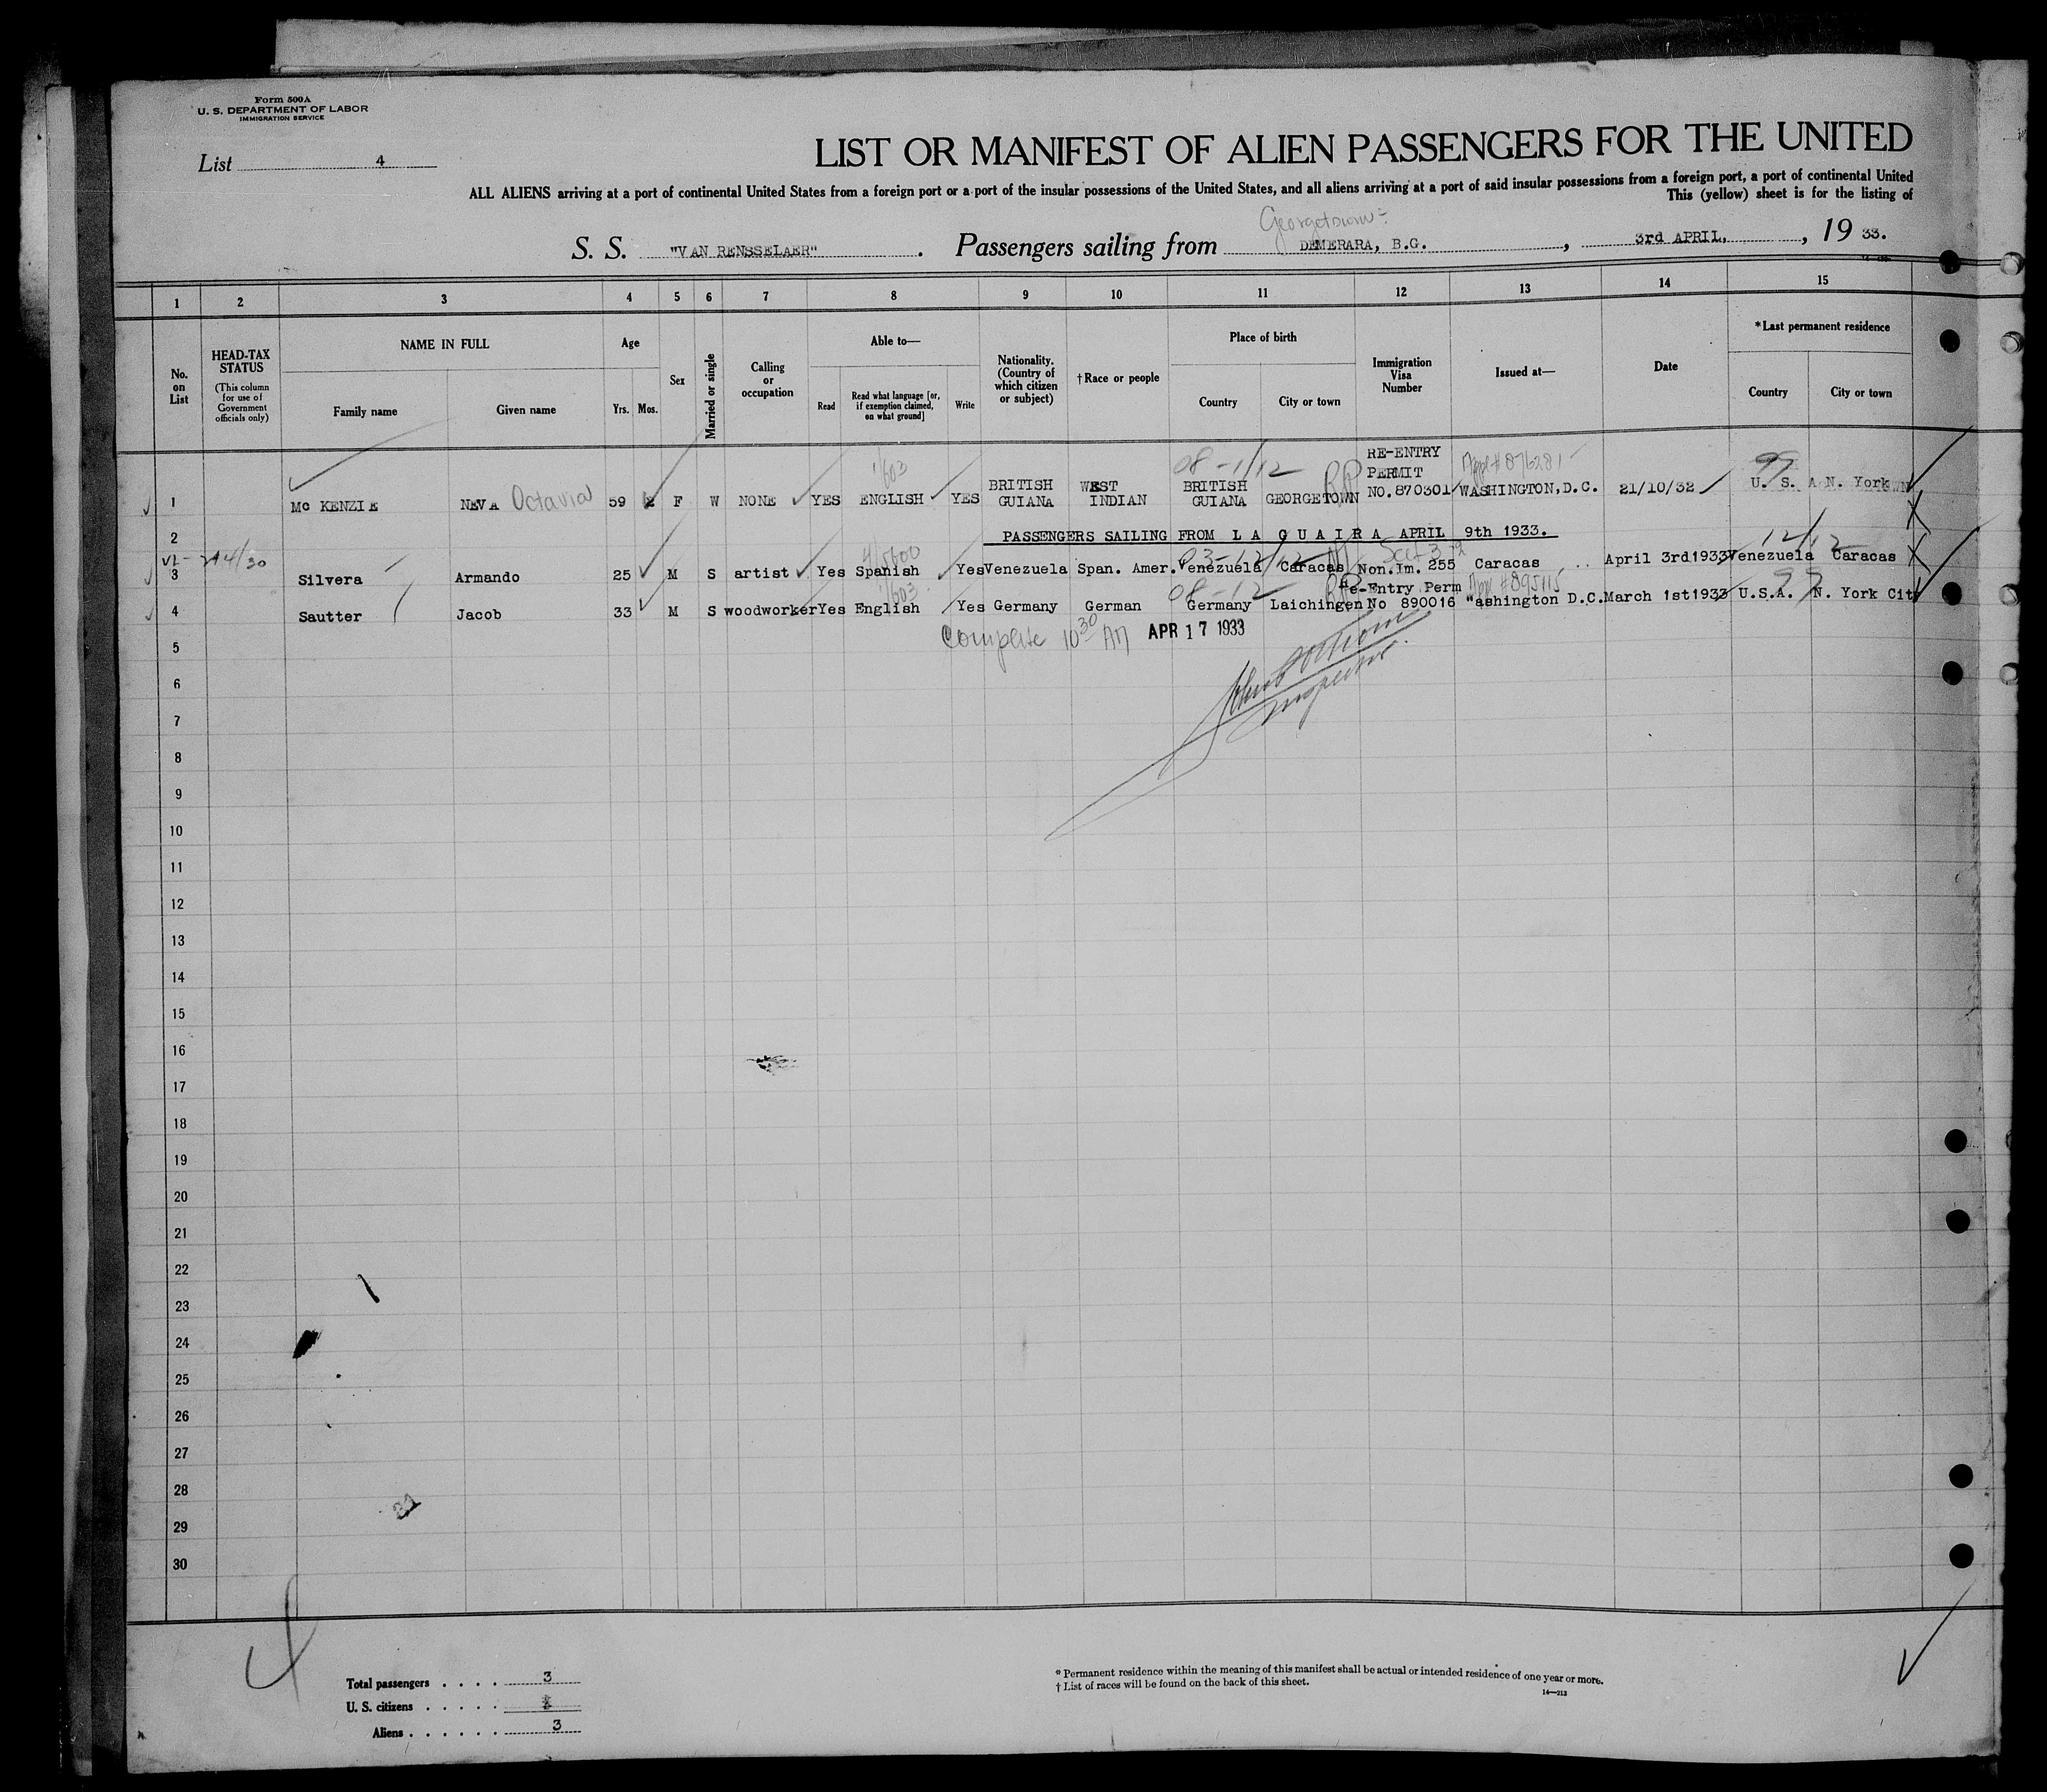 Form 500A
U. S. DEPARTMENT OF LABOR
IMMIGRATION SERVICE
List 4
LIST OR MANIFEST OF ALIEN PASSENGERS FOR THE UNITED
ALL ALIENS arriving at a port of continental United States from a foreign port or a port of the insular possessions of the United States, and all aliens arriving at a port of said insular possessions from a foreign port, a port of continental United
This (yellow) sheet is for the listing of
Georgetown
S. S. "VAN RENSSELAER". Passengers sailing from DEMERARA, B.G., 3rd APRIL, 19 33.
1 2 3 4 5 6 7 8 9 10 11 12 13 14 15
No. on List
HEAD-TAX STATUS
(This column for use of Government officials only)
NAME IN FULL
Family name Given name
Age
Yrs. Mos.
Sex
Married or single
Calling or occupation
Able to—
Read
Read what language [or, if exemption claimed, on what ground]
Write
Nationality. (Country of which citizen or subject)
†Race or people
Place of birth
Country City or town
Immigration Visa Number
Issued at—
Date
*Last permanent residence
Country City or town
1/603 08-1/12 RE-ENTRY PERMIT Appl # 876281 99
1 Mc KENZIE NEVA Octavia 59 F W NONE YES ENGLISH YES BRITISH GUIANA WEST INDIAN BRITISH GUIANA GEORGETOWN NO.870301 WASHINGTON,D.C. 21/10/32 U. S. A N. York
2 PASSENGERS SAILING FROM L A G U A I R A APRIL 9th 1933.
4/5600 03-12/12 Sect 3 12/12
3 Silvera Armando 25 M S artist Yes Spanish Yes Venezuela Span. Amer. Venezuela Caracas Non.Im. 255 Caracas April 3rd1933 Venezuela Caracas
1/603 08-12 Re-Entry Perm Appl #895115 99
4 Sautter Jacob 33 M S woodworker Yes English Yes Germany German Germany Laichingen No 890016 "ashington D.C. March 1st1933 U.S.A. N. York City
5 Complete 10 30 AM APR 17 1933
6
Inspector.
7
8
9
10
11
12
13
14
15
16
17
18
19
20
21
22
23
24
25
26
27
28
29
30
Total passengers . . . . 3
U. S. citizens . . . . .
Aliens . . . . . . 3
* Permanent residence within the meaning of this manifest shall be actual or intended residence of one year or more.
† List of races will be found on the back of this sheet.
14—213